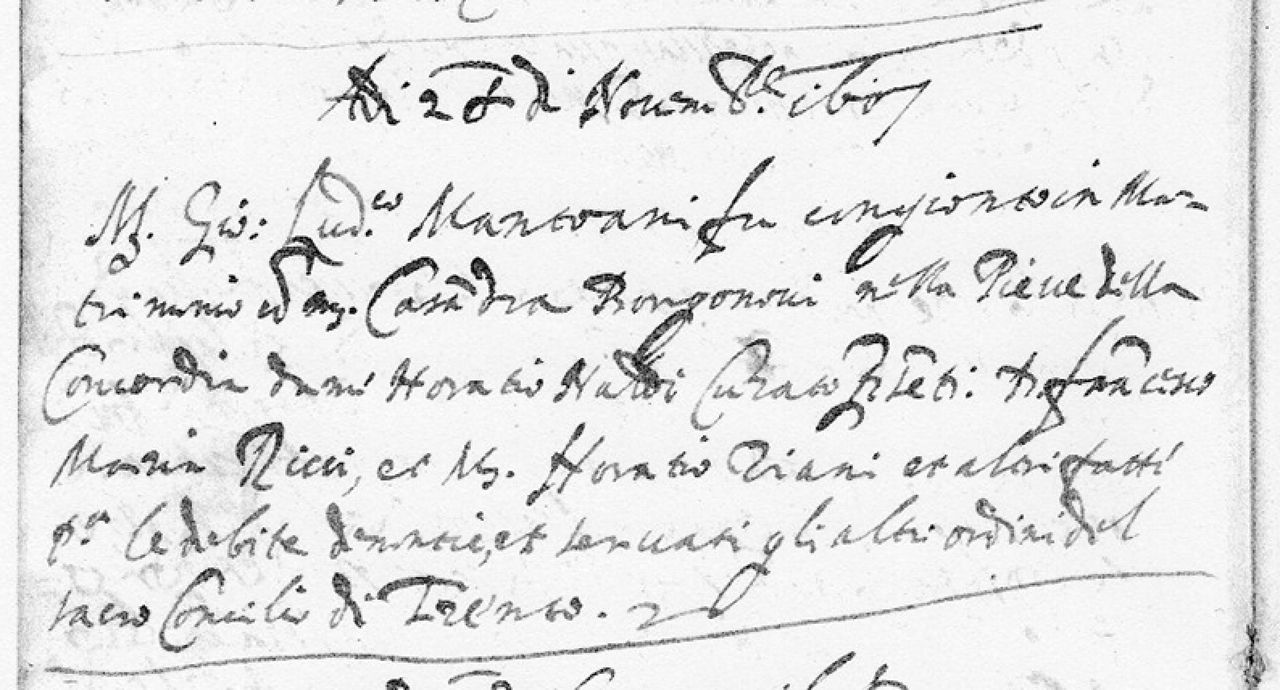 Adi 28 di Novembre 1607
M. Gio: Lud.co Mantovani fu congionto in Ma-
trimonio cō m. Casādra Borgonovi nella Pieve della
Concordia da me Horatio Naldi Curato p̄sēti: frācesco
Maria Ricci, et M. Horatio Viani et altri fatti
p.a le debite denontie, et servati gli altri ordini del
sacro Concilio di Trento.